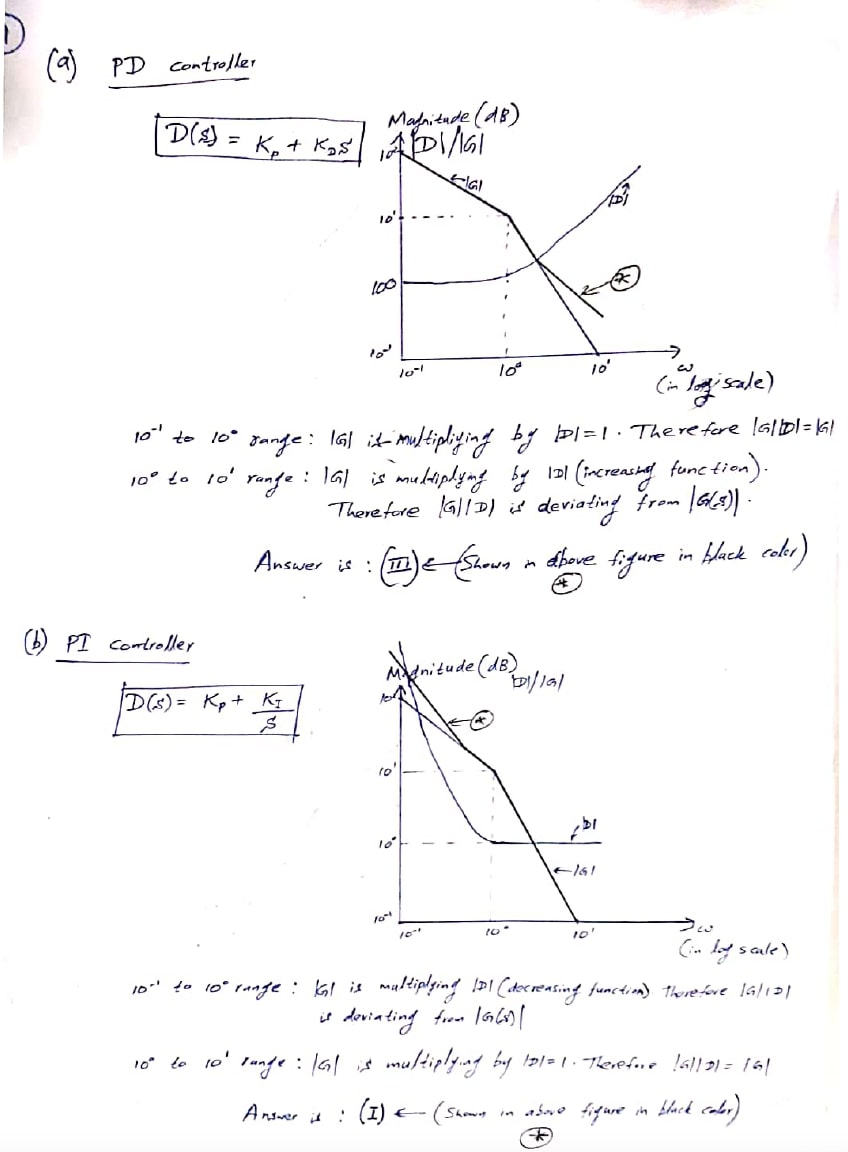 1
(a) PD controller
D(s) = Kp + KDs
Magnitude (dB)
|D|/|G|
10²
←|G|
|D|
10¹
*
100
10⁻¹
10⁻¹ 10⁰ 10¹
ω
(in log scale)
10⁻¹ to 10⁰ range : |G| is multipliying by |D|=1. Therefore |G||D|=|G|
10⁰ to 10¹ range : |G| is multiplying by |D| (increasing function).
Therefore |G||D| is deviating from |G(s)|.
Answer is : (III) ← (Shown in above figure in black color)
*
(b) PI controller
D(s) = Kp + KI/s
Magnitude (dB)
|D|/|G|
10²
*
10¹
|D|
10⁰
←|G|
10⁻¹
10⁻¹ 10⁰ 10¹
ω
(in log scale)
10⁻¹ to 10⁰ range : |G| is multiplying |D| (decreasing function) therefore |G||D|
is deviating from |G(s)|
10⁰ to 10¹ range : |G| is multiplying by |D|=1. Therefore |G||D| = |G|
Answer is : (I) ← (Shown in above figure in black color)
*